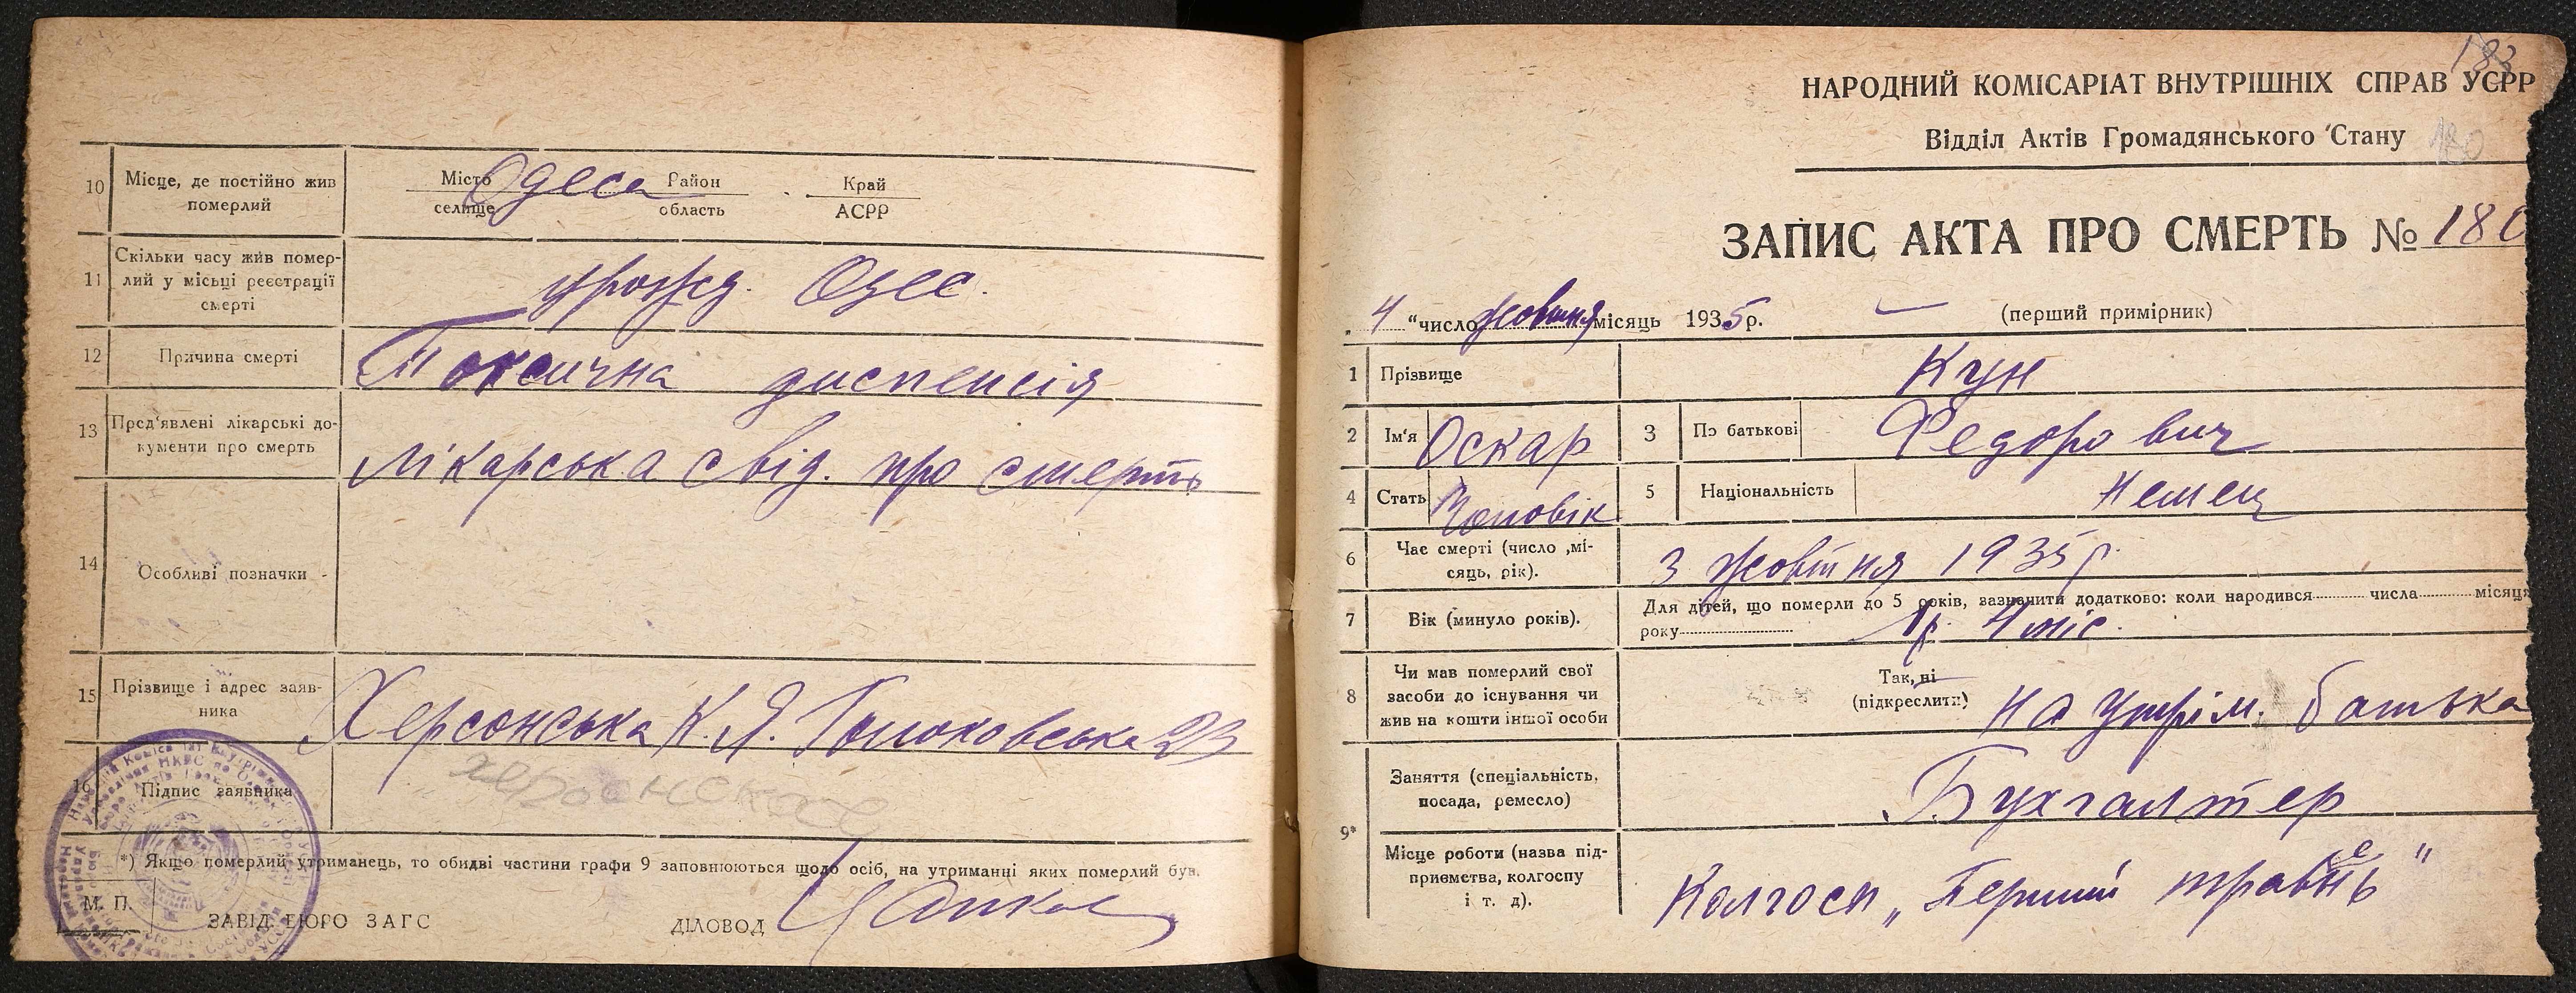 10 Місце, де постійно жив померлий
Місто селище Район область Край АСРР
Одеса
11 Скільки часу жив померлий у місьці реєстрації смерті
урожд. Одес.
12 Причина смерті
Токсична диспепсія
13 Пред'явлені лікарські документи про смерть
Лікарська свід. про смерть
14 Особливі позначки
15 Прізвище і адрес заявника
Херсонська К. Я. 23
16 Підпис заявника
*) Якщо померлий утриманець, то обидві частини графи 9 заповнюються щодо осіб, на утриманні яких померлий був.
М. П.
ЗАВІД. БЮРО ЗАГС ДІЛОВОД
183
НАРОДНИЙ КОМІСАРІАТ ВНУТРІШНІХ СПРАВ УСРР
Відділ Актів Громадянського Стану
180
ЗАПИС АКТА ПРО СМЕРТЬ № 180
„ 4 “ число жовтня місяць 1935 р. (перший примірник)
1 Прізвище Кун
2 Ім'я Оскар 3 По батькові Федорович
4 Стать Чоловік 5 Національність Немец
6 Час смерті (число ,місяць, рік). 3 жовтня 1935 р.
7 Вік (минуло років).
Для дітей, що померли до 5 років, зазначити додатково: коли народився числа місяця
року 1 р. 4 міс.
8 Чи мав померлий свої засоби до існування чи жив на кошти іншої особи
Так, ні (підкреслити) на утрім. батька
9* Заняття (спеціальність, посада, ремесло)
Бухгалтер
Місце роботи (назва підприємства, колгоспу і т. д).
Колгосп „Перший травень“